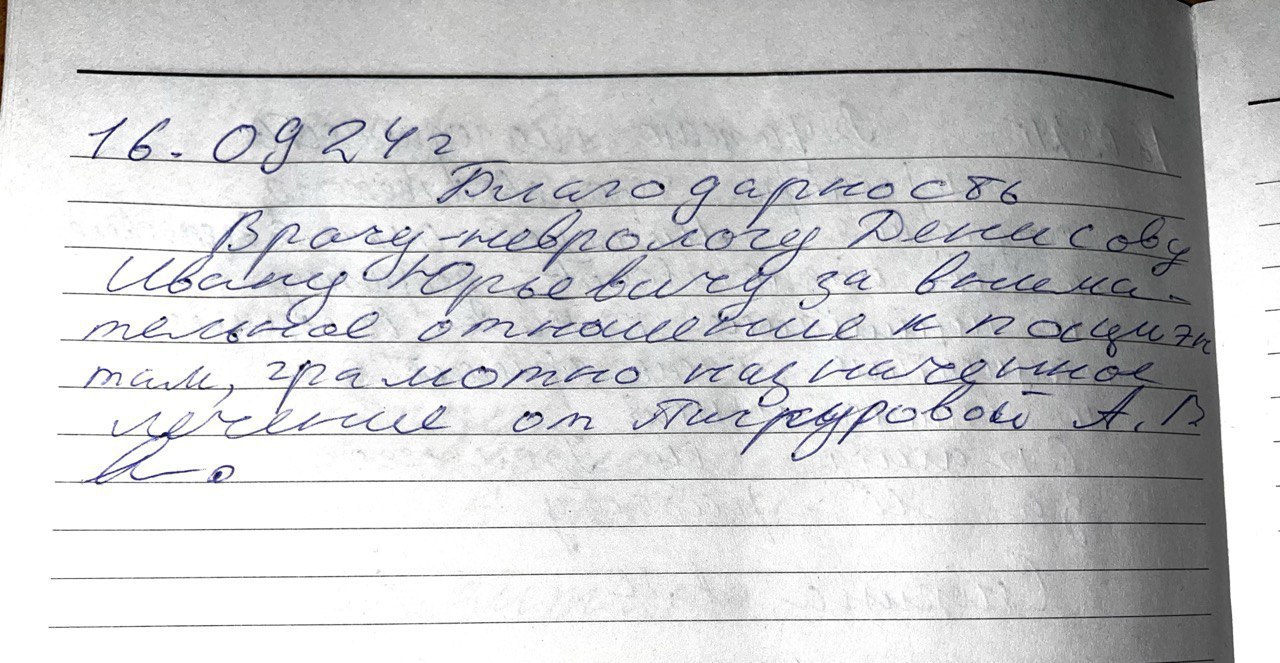 16. 09 24 г
Благодарность
Врачу-неврологу Денисову
Ивану Юрьевичу за внима-
тельное отношение к пациэн
там, грамотно назначенное
лечение от А. В